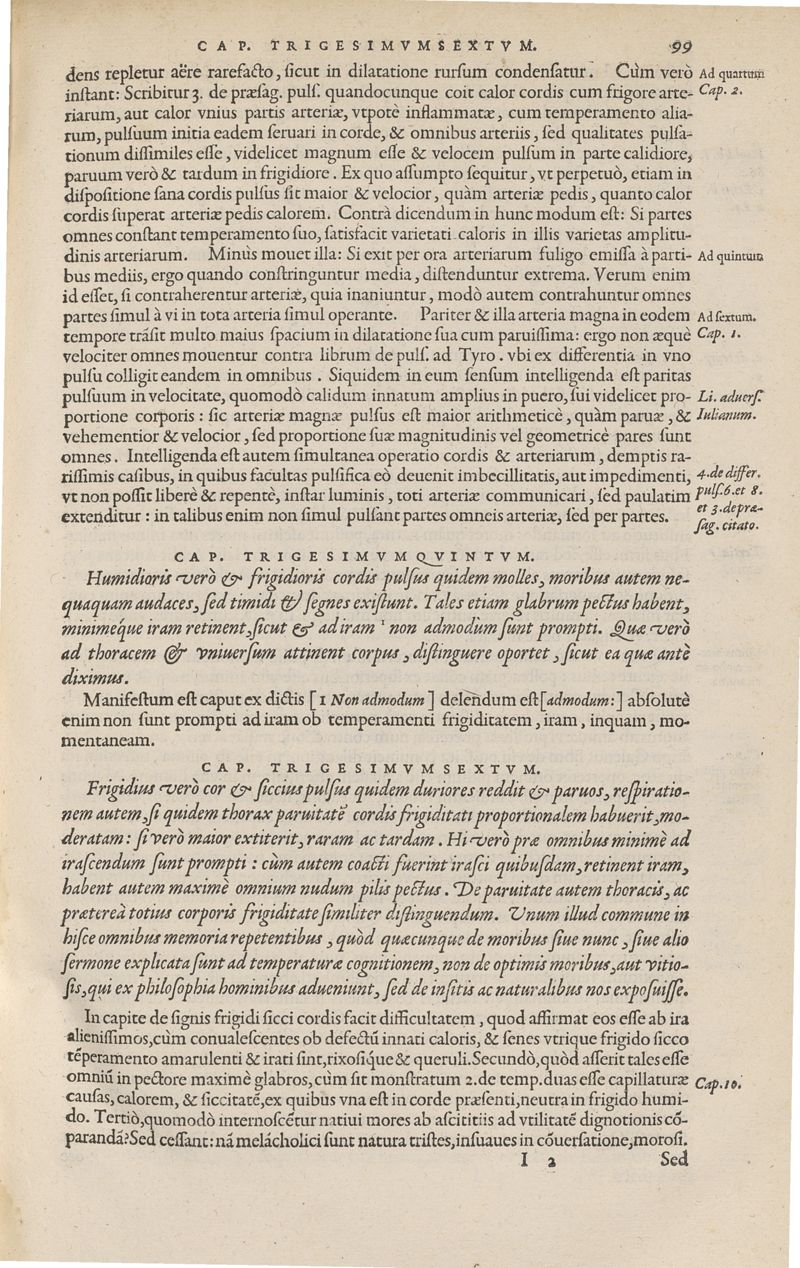 CAP. TRIGESIMVMSEXTVM. 99
dens repletur aëre rarefacto, ſicut in dilatatione rurſum condenſatur. Cùm verò Ad quartum
inſtant: Scribitur 3. de præſag. pulſ. quandocunque coit calor cordis cum frigore arte- Cap. 2.
riarum, aut calor vnius partis arteriæ, vtpotè inflammatæ, cum temperamento alia-
rum, pulſuum initia eadem ſeruari in corde, & omnibus arteriis, ſed qualitates pulſa-
tionum diſſimiles eſſe, videlicet magnum eſſe & velocem pulſum in parte calidiore,
paruum verò & tardum in frigidiore. Ex quo aſſumpto ſequitur, vt perpetuò, etiam in
diſpoſitione ſana cordis pulſus ſit maior & velocior, quàm arteriæ pedis, quanto calor
cordis ſuperat arteriæ pedis calorem. Contrà dicendum in hunc modum eſt: Si partes
omnes conſtant temperamento ſuo, ſatisfacit varietati caloris in illis varietas amplitu-
dinis arteriarum. Minùs mouet illa: Si exit per ora arteriarum fuligo emiſſa à parti- Ad quintum
bus mediis, ergo quando conſtringuntur media, diſtenduntur extrema. Verum enim
id eſſet, ſi contraherentur arteriæ, quia inaniuntur, modò autem contrahuntur omnes
partes ſimul à vi in tota arteria ſimul operante. Pariter & illa arteria magna in eodem Ad ſextum.
tempore trãſit multo maius ſpacium in dilatatione ſua cum paruiſſima: ergo non æquè Cap. 1.
velociter omnes mouentur contra librum de pulſ. ad Tyro. vbi ex differentia in vno
pulſu colligit eandem in omnibus. Siquidem in eum ſenſum intelligenda eſt paritas
pulſuum in velocitate, quomodò calidum innatum amplius in puero, ſui videlicet pro- Li. aduerſ.
portione corporis: ſic arteriæ magnæ pulſus eſt maior arithmeticè, quàm paruæ, & Iulianum.
vehementior & velocior, ſed proportione ſuæ magnitudinis vel geometricè pares ſunt
omnes. Intelligenda eſt autem ſimultanea operatio cordis & arteriarum, demptis ra-
riſſimis caſibus, in quibus facultas pulſifica eò deuenit imbecillitatis, aut impedimenti, 4. de differ.
vt non poſſit liberè & repentè, inſtar luminis, toti arteriæ communicari, ſed paulatim pulſ. 6. et 8.
extenditur: in talibus enim non ſimul pulſant partes omneis arteriæ, ſed per partes. et 3. de præ-
ſag. citato.
CAP. TRIGESIMVMQVINTVM.
Humidioris verò & frigidioris cordis pulſus quidem molles, moribus autem ne-
quaquam audaces, ſed timidi & ſegnes exiſtunt. Tales etiam glabrum pectus habent,
minimeque iram retinent, ſicut & ad iram 1 non admodùm ſunt prompti. Quæ verò
ad thoracem & vniuerſum attinent corpus, diſtinguere oportet, ſicut ea quæ antè
diximus.
Manifeſtum eſt caput ex dictis [1 Non admodum] delendum eſt [admodum:] abſolutè
enim non ſunt prompti ad iram ob temperamenti frigiditatem, iram, inquam, mo-
mentaneam.
CAP. TRIGESIMVMSEXTVM.
Frigidius verò cor & ſiccius pulſus quidem duriores reddit & paruos, reſpiratio-
nem autem, ſi quidem thorax paruitatẽ cordis frigiditati proportionalem habuerit, mo-
deratam: ſi verò maior extiterit, raram ac tardam. Hi verò præ omnibus minimè ad
iraſcendum ſunt prompti: cùm autem coacti fuerint iraſci quibuſdam, retinent iram,
habent autem maximè omnium nudum pilis pectus. De paruitate autem thoracis, ac
prætereà totius corporis frigiditate ſimiliter diſtinguendum. Vnum illud commune in
hiſce omnibus memoria repetentibus, quòd quæcunque de moribus ſiue nunc, ſiue alio
ſermone explicata ſunt ad temperaturæ cognitionem, non de optimis moribus, aut vitio-
ſis, qui ex philoſophia hominibus adueniunt, ſed de inſitis ac naturalibus nos expoſuiſſe.
In capite de ſignis frigidi ſicci cordis facit difficultatem, quod affirmat eos eſſe ab ira
alieniſſimos, cùm conualeſcentes ob defectũ innati caloris, & ſenes vtrique frigido ſicco
tẽperamento amarulenti & irati ſint, rixoſique & queruli. Secundò, quòd aſſerit tales eſſe
omniũ in pectore maximè glabros, cùm ſit monſtratum 2. de temp. duas eſſe capillaturæ Cap. 10.
cauſas, calorem, & ſiccitatẽ, ex quibus vna eſt in corde præſenti, neutra in frigido humi-
do. Tertiò, quomodò internoſcẽtur natiui mores ab aſcititiis ad vtilitatẽ dignotionis cõ-
parandã? Sed ceſſant: nã melãcholici ſunt natura triſtes, inſuaues in cõuerſatione, moroſi.
I 2 Sed